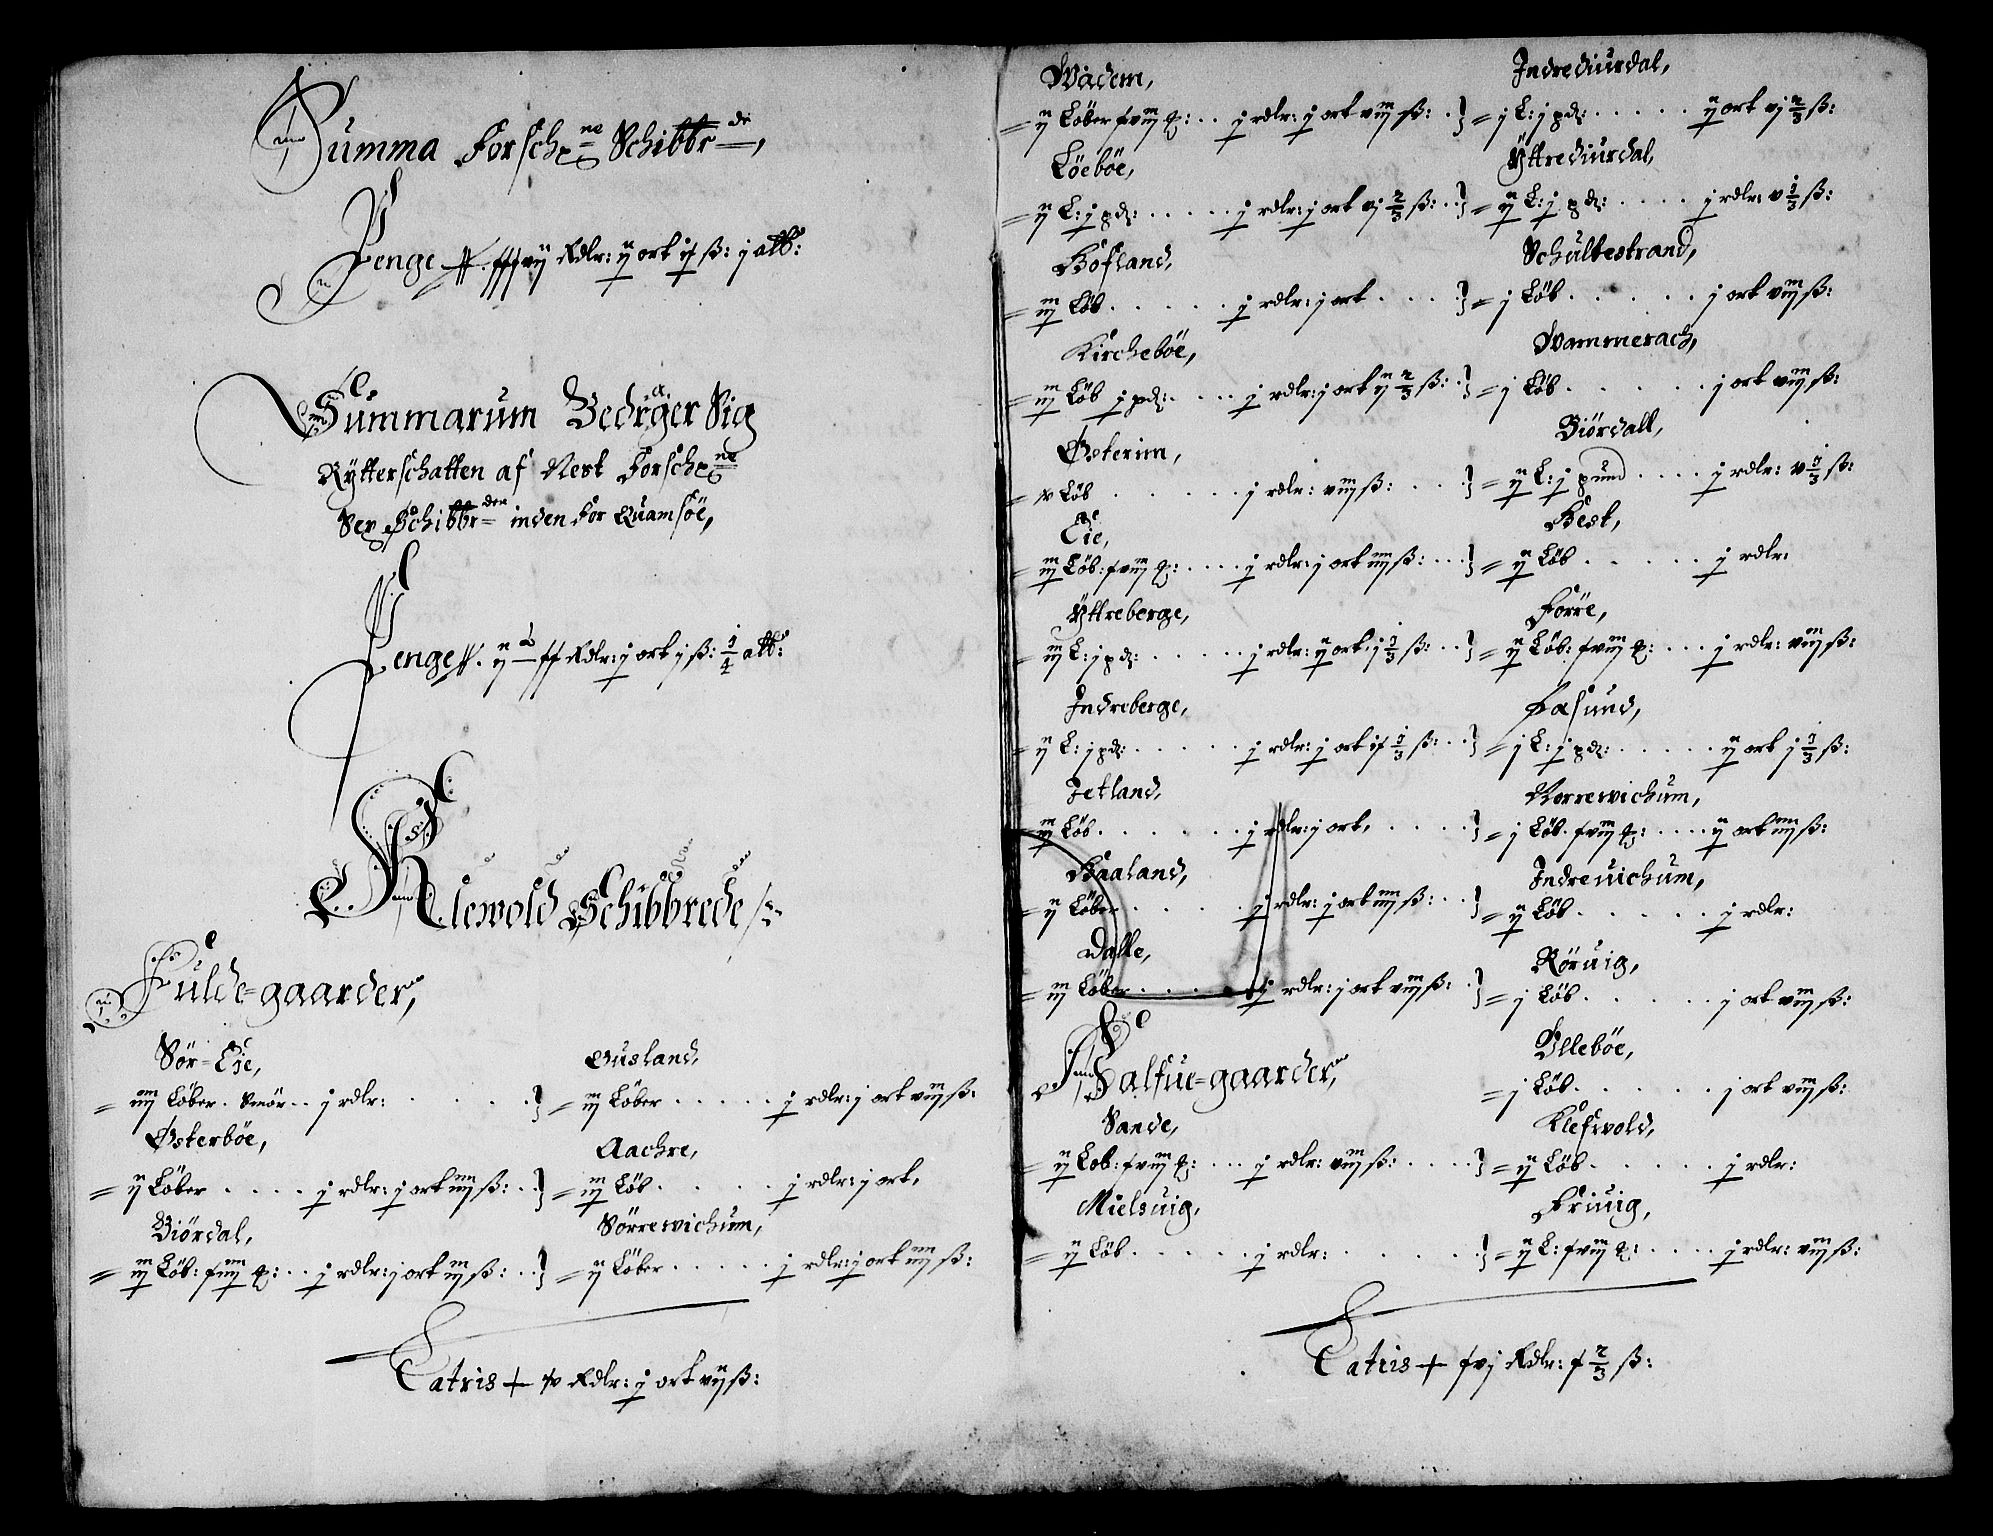 Summa Forschr:ne Schibbr:de,
Penge
Rdlr: ij ort ix ß: j alb:
Summarum Bedrager Sig
Rytterschatten af Nest Forschr:ne
Sex Schibbr:der inden for Quamsöe,
Penge
Rdlr: j ort j ß: 1/4 alb:
Klewold Schibbrede
Fulde=gaarder,
Sör=Eje,
= iiij Löber . Smör . . j rdlr: . . . . }
Österböe,
= ij Löber . . . . j rdlr: j ort iiij ß: . . }
Biördal,
= iij Löb: xiiij : . . j rdlr: j ort iij ß: . . }
Ousland,
= iij Löber . . . . . j rdlr: j ort viij ß:
Aachre,
= iij Löb . . . . j rdlr: j ort,
Sörrewichum,
= ij Löber . . . . . j rdlr: j ort iiij ß:
Latris + xv Rdlr: j ort vij ß:
Wadem,
= ij Löber xviij : . . j rdlr: j ort viij ß: . }
Löeböe,
= ij L: j pd: . . . . . j rdlr: j ort vj 2/3 ß: . . }
Hofland,
= iij Löb . . . . . j rdlr: j ort . . . . }
Kircheböe,
= iij Löb j pd: . . . . j rdlr: j ort ij 2/3 ß: . }
Österim,
= v Löb . . . . . j rdlr: viij ß: . . . }
Eie,
= iij Löb: xviij : . . . . j rdlr: j ort iiij ß: . . . }
Yttreberge,
= iij L: j pd: . . . . . j rdlr: ij ort j 1/3 ß: . . }
Indreberge,
= ij L: j pd: . . . . . j rdlr: j ort ix 1/3 ß: . . }
Jetland,
= iij Löb . . . . . . j rdlr: j ort, . . . . }
Haaland,
= ij Löber . . . . . j rdlr: j ort iiij ß: . . }
Dalle,
= iij Löber . . . . j rdlr: j ort viij ß: . }
Halfue=gaarder,
Sande,
= ij Lob: xviij : . . . j rdlr: viij ß: . . . . }
Mielsuig,
= ij Löb . . . . . j rdlr: . . . . . }
Indrediurdal,
= j L: j pd: . . . . . ij ort vj 2/3 ß:
Yttrediurdal,
= ij L: j pd: . . . . j rdlr: v 1/3 ß:
Schultestrand,
= j Löb . . . . . j ort viij ß:
Wammerach,
= j Löb . . . . . j ort viij ß:
Biördall,
= ij L: j pund . . . . j rdlr: v 1/3 ß:
Hest,
= ij Löb . . . . . j rdlr:
Förre,
= ij Löb: xviij : . . . j rdlr: viij ß:
Fasund,
= j L: j pd: . . . . . ij ort j 1/3 ß:
Norrewichum,
= j Löb . xviij : . . . . ij ort iiij ß:
Indreuichum,
= ij Löb . . . . . j rdlr:
Röruig,
= j Löb . . . . . j ort viij ß:
Olleböe,
= j Löb . . . . . j ort viij ß:
Klefwold,
= ij Löb . . . . . j rdlr:
Friuig,
= ij L: xviij : . . . . j rdlr: viij ß:
Latris + xvj Rdlr: x 2/3 ß: